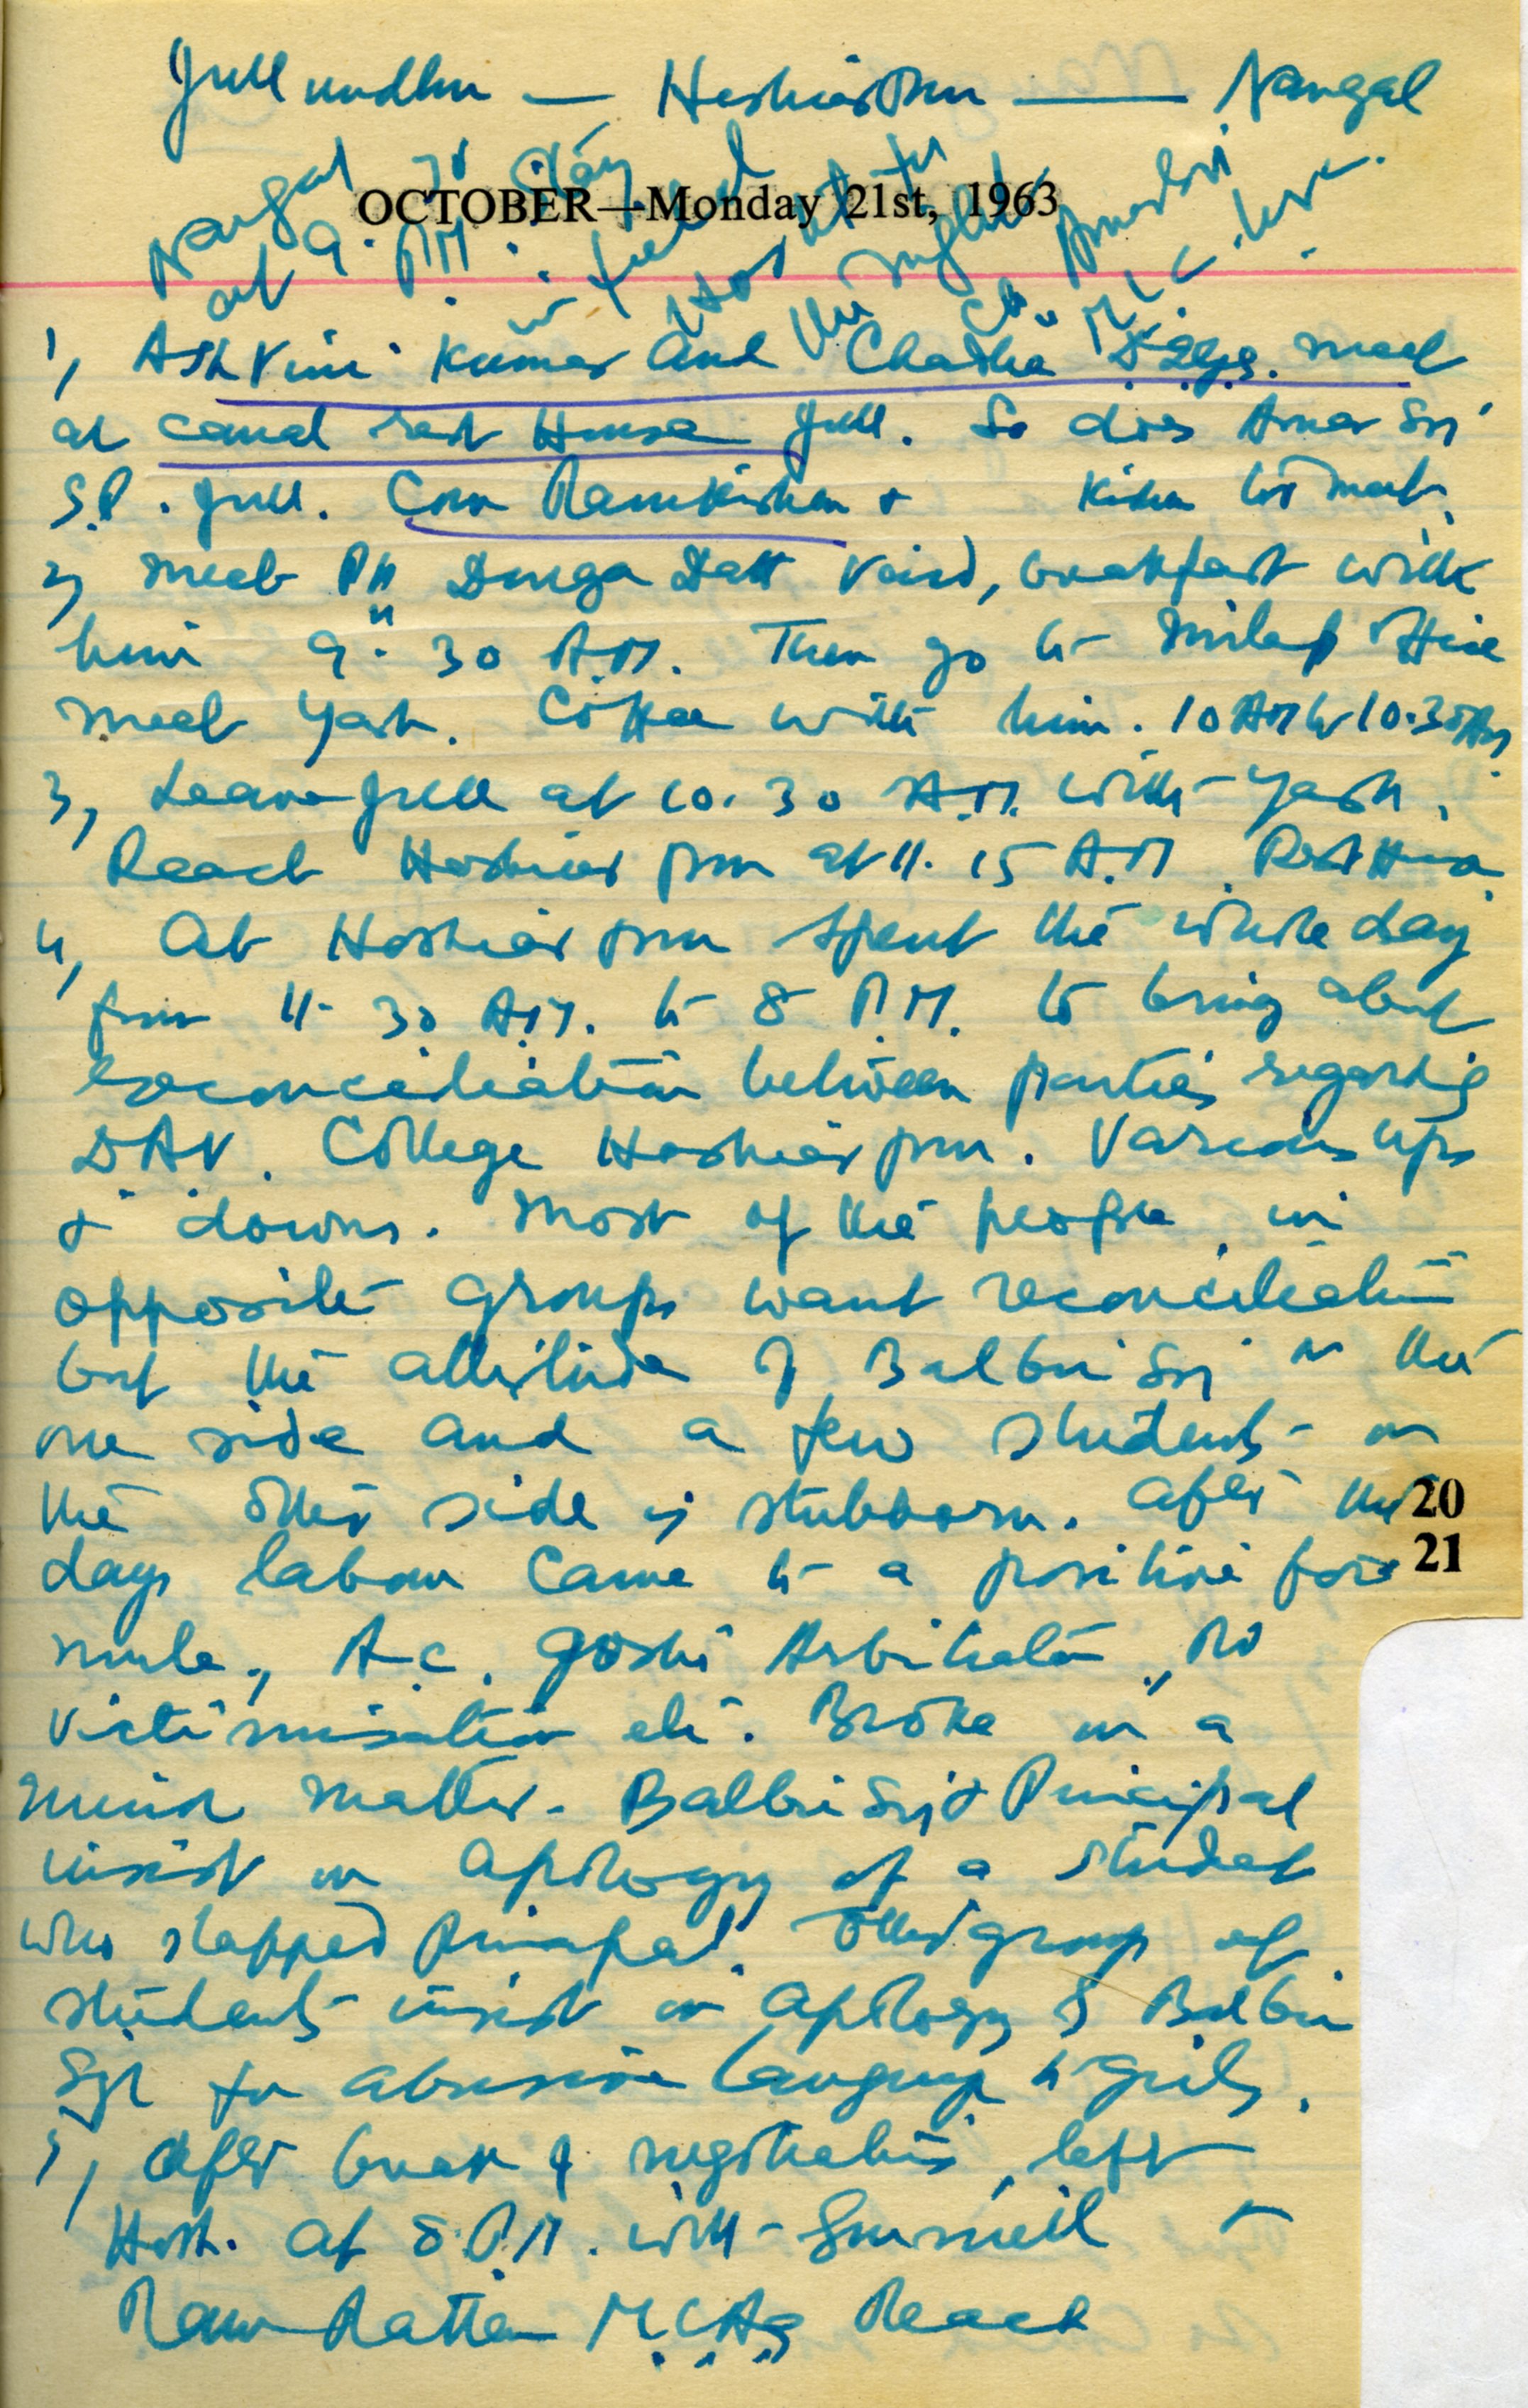 Jullundhur — Hoshiarpur — Nangal
OCTOBER—Monday 21st, 1963
Nangal to stay
at 9. P.M. in field Hostel for the night. Ch. Amar Sri M.L.C. here.
1, Ashvini Kumar and Chadha D.I.Gs. meet
at canal rest House Jull. So does Amar Sri
S.P. Jull. Com Ramkishan & Kishen to meet.
2, meet Pt Durga Datt Vaid, breakfast with
him 9. 30 A.M. Then go to Milap Office
meet Yash. Coffee with him. 10 AM to 10.30 AM
3, Leave Jull at 10. 30 A.M. with Yash.
Reach Hoshiarpur at 11. 15 A.M. Rest House.
4, At Hoshiarpur spent the whole day
from 11. 30 A.M. to 8 P.M. to bring about
reconciliation between parties regarding
DAV. College Hoshiarpur. Various ups
& downs. Most of the people in
opposite groups want reconciliation
but the attitude of Balbir Sri on the
one side and a few students on
the other side is stubborn. After the
20
days labour came to a positive for
21
mula, A.C. Joshi Arbitration, No
victimisation etc. Broke on a
minor matter. Balbir Sri & Principal
insist on apology of a student
who slapped Principal. Other group of
students insist on apology of Balbir
Sgh for abusive language to girls.
5, After break of negotiations, left
Hosh. at 8. P.M. with
Ram Rattan M.L.As Reach